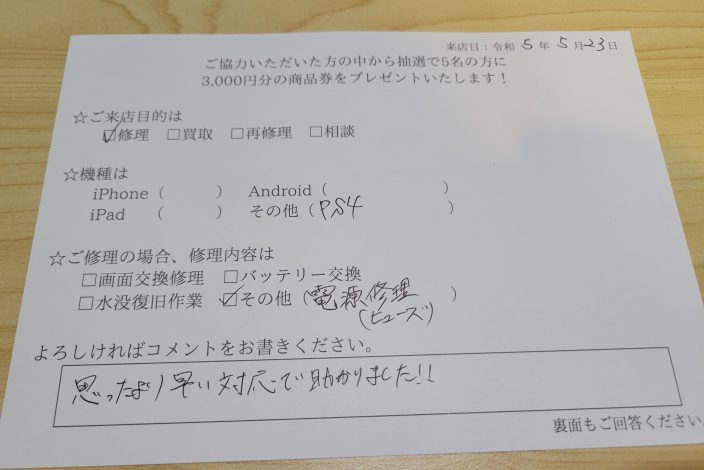 来店日：令和 5 年 5 月 23 日
ご協力いただいた方の中から抽選で5名の方に
3,000円分の商品券をプレゼントいたします！
☆ご来店目的は
☑修理 □買取 □再修理 □相談
☆機種は
iPhone（ ） Android（ ）
iPad （ ） その他（PS4 ）
☆ご修理の場合、修理内容は
□画面交換修理 □バッテリー交換
□水没復旧作業 ☑その他（電源修理 ）
(ヒューズ)
よろしければコメントをお書きください。
思ったより早い対応で助かりました!!
裏面もご回答ください